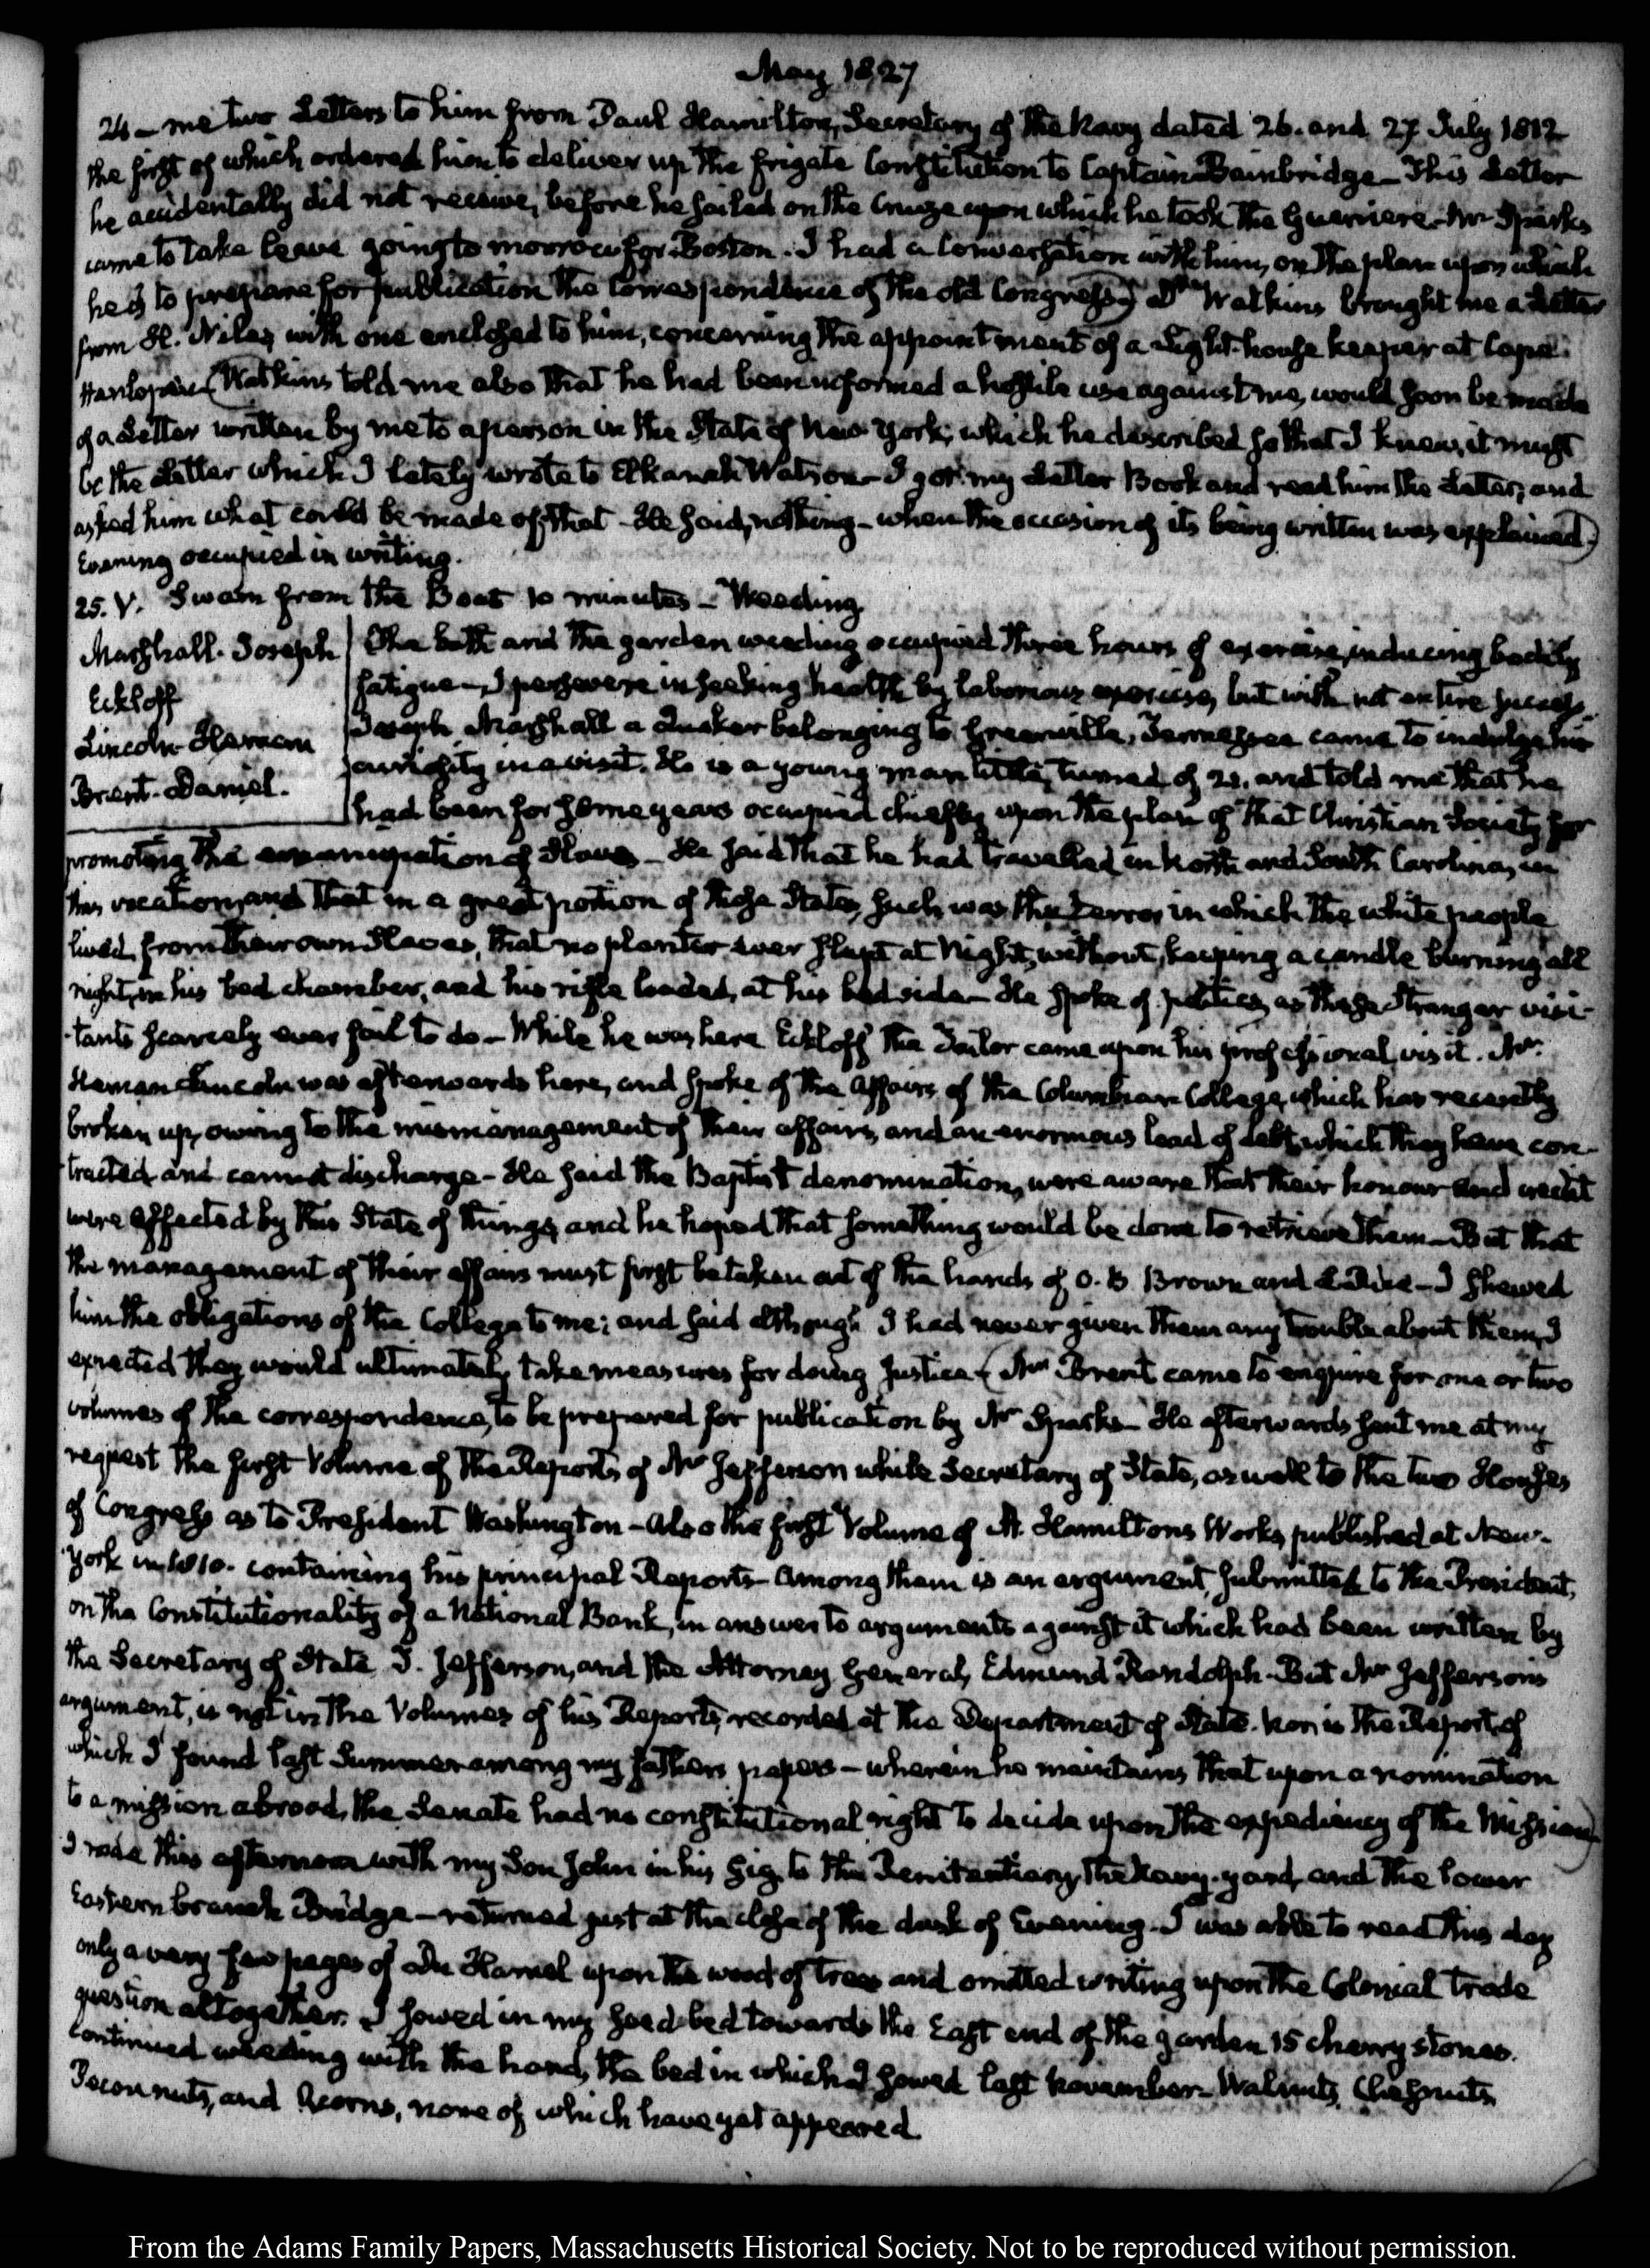 May 1827
24 – me two Letters to him from Paul Hamilton, Secretary of the Navy dated 26. and 27 July 1812
the first of which ordered him to deliver up the frigate Constitution to Captain Bainbridge – This Letter
he accidentally did not receive, before he sailed on the Cruize upon which he took the Guerriere – Mr Sparks
came to take leave going to morrow for Boston. I had a conversation with him, on the plan upon which
he is to prepare for publication the correspondence of the old Congress) Dr Watkins brought me a Letter
from H. Niles with one enclosed to him, concerning the appointment of a Light-house keeper at Cape
Henlopen (Watkins told me also that he had been informed a hostile use against me, would soon be made
of a Letter written by me to a person in the State of New York, which he described so that I knew, it must
be the Letter which I lately wrote to Elkanah Watson – I got my Letter Book and read him the Letter, and
asked him what could be made of that – He said, nothing – when the occasion of its being written was explained.)
Evening occupied in writing.
25. V. Swam from the Boat 10 minutes – Weeding.
Marshall. Joseph
Eckloff
Lincoln – Heman
Brent. Daniel.
The bath and the garden weeding occupied three hours of exercise, inducing bodily
fatigue – I persevere in seeking health by laborious exercise, but with not entire success
Joseph Marshall a Quaker belonging to Greenville, Tennessee came to indulge his
curiosity in a visit. He is a young man little turned of 21. and told me that he
had been for some years occupied chiefly upon the plan of that Christian Society for
promoting the emancipation of Slaves – He said that he had travelled in North and South Carolina, in
this vocation, and that in a great portion of those States, such was the terror in which the white people
lived, from their own Slaves, that no planter ever slept at Night, without, keeping a candle burning all
night, in his bed chamber, and his rifle loaded, at his bed side – He spoke of politics, as these Stranger visi-
tants scarcely ever fail to do – While he was here Eckloff the Tailor came upon his professional visit. Mr
Heman Lincoln was afterwards here, and spoke of the affairs of the Columbian College, which has recently
broken up, owing to the mismanagement of their affairs, and an enormous load of debt, which they have con-
tracted and cannot discharge – He said the Baptist denomination, were aware that their honour and credit
were affected by this State of things, and he hoped that something would be done to retrieve them – But that
the management of their affairs must first be taken out of the hands of O. B. Brown and – I shewed
him the obligations of the College to me; and said although I had never given them any trouble about them, I
expected they would ultimately take measures for doing Justice – (Mr Brent came to enquire for one or two
volumes of the correspondence, to be prepared for publication by Mr Sparks – He afterwards sent me at my
request the first Volume of the Reports of Mr Jefferson while Secretary of State, as well to the two Houses
of Congress as to President Washington – Also the first Volume of A. Hamiltons Works, published at New-
York in 1810. containing his principal Reports – Among them is an argument, submitted to the President,
on the Constitutionality of a National Bank, in answer to arguments against it which had been written by
the Secretary of State T. Jefferson, and the Attorney General, Edmund Randolph – But Mr Jeffersons
argument, is not in the Volumes of his Reports, recorded at the Department of State. Nor is the Report, of
which I found last Summer among my fathers papers – wherein he maintains that upon a nomination
to a mission abroad, the Senate had no constitutional right to decide upon the expediency of the Mission)
I rode this afternoon with my Son John in his gig, to the Penitentiary, the Navy-yard, and the lower
Eastern branch Bridge – returned just at the close of the dusk of Evening – I was able to read this day
only a very few pages of Du Hamel upon the wood of trees and omitted writing upon the Colonial trade
question altogether. I sowed in my seed-bed towards the East end of the garden 15 cherry stones.
Continued weeding with the hand, the bed in which I sowed last November – Walnuts, Chesnuts,
Pecon nuts, and Acorns, none of which have yet appeared.
From the Adams Family Papers, Massachusetts Historical Society. Not to be reproduced without permission.